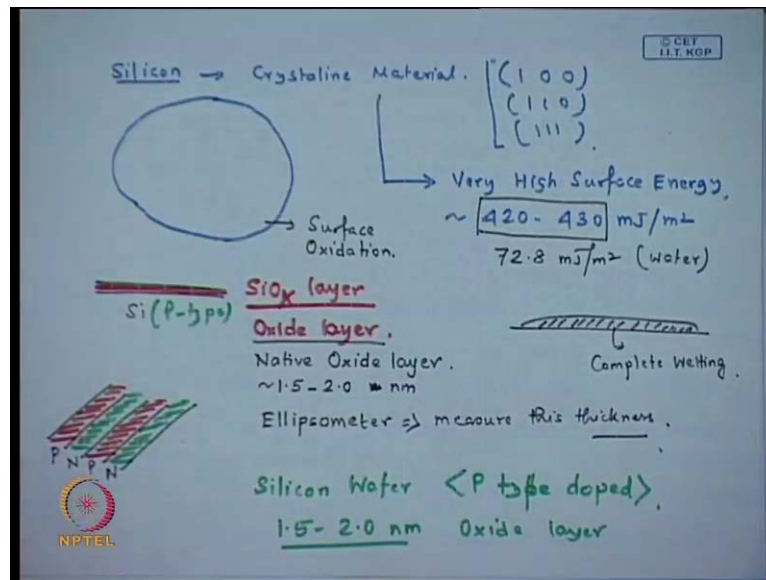 © CET
I.I.T. KGP
Silicon → Crystaline Material. (1 0 0)
(1 1 0)
(1 1 1).
Very High Surface Energy.
~ 420 - 430 mJ/m2
72.8 mJ/m2 (water)
Surface
Oxidation.
SiOx layer
Si (P-type)
Oxide layer.
Native Oxide layer.
~1.5 - 2.0 nm
Complete Wetting.
Ellipsometer => measure this thickness.
P N P N
Silicon Wafer <P type doped>.
1.5 - 2.0 nm Oxide layer
NPTEL